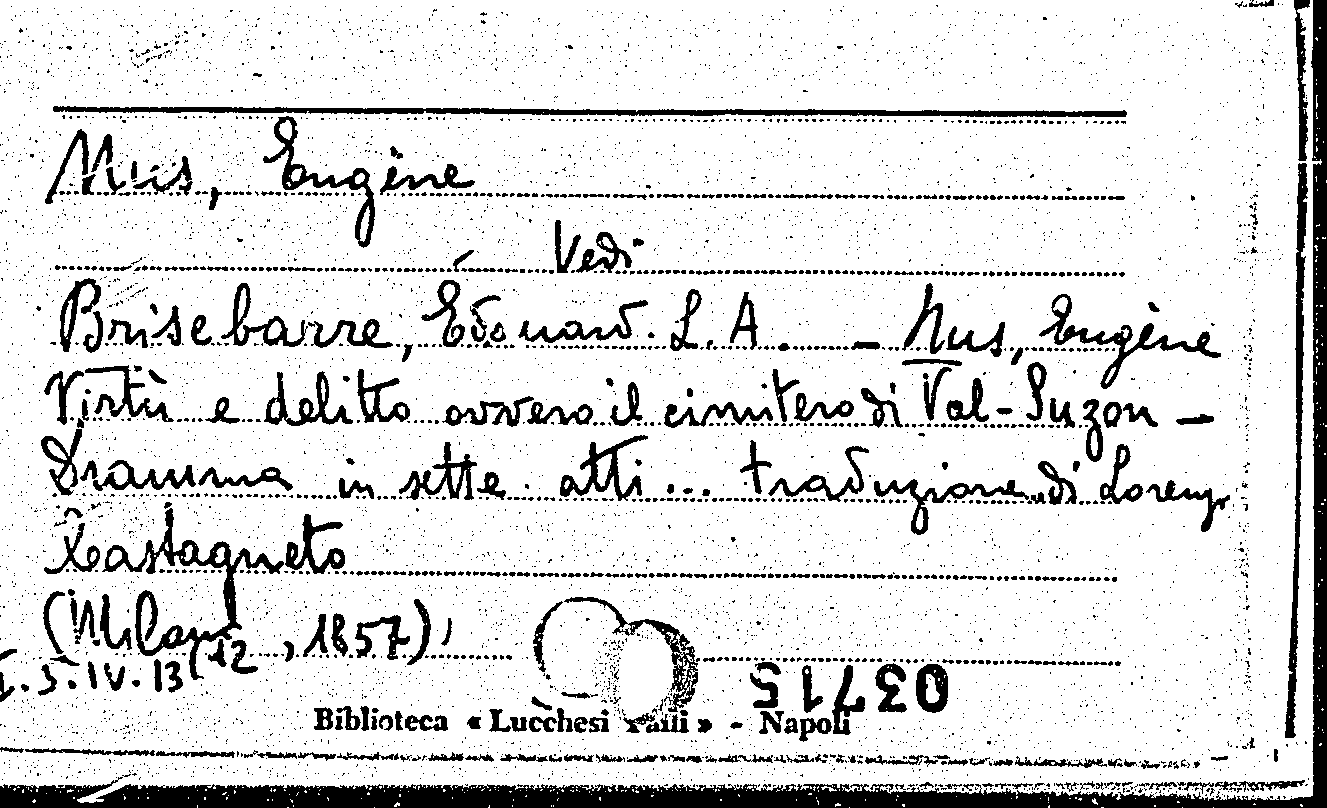 Nus, Eugène
Vedi
Brisebarre, Édouard. L. A. – Nus, Eugène
Virtù e delitto ovvero il cimitero di Val-Suzon –
Dramma in sette atti... traduzione di Lorenzo
Castagneto
(Milano, 1857)
L.S.IV.13(12
03715
Biblioteca « Lucchesi Palli » - Napoli